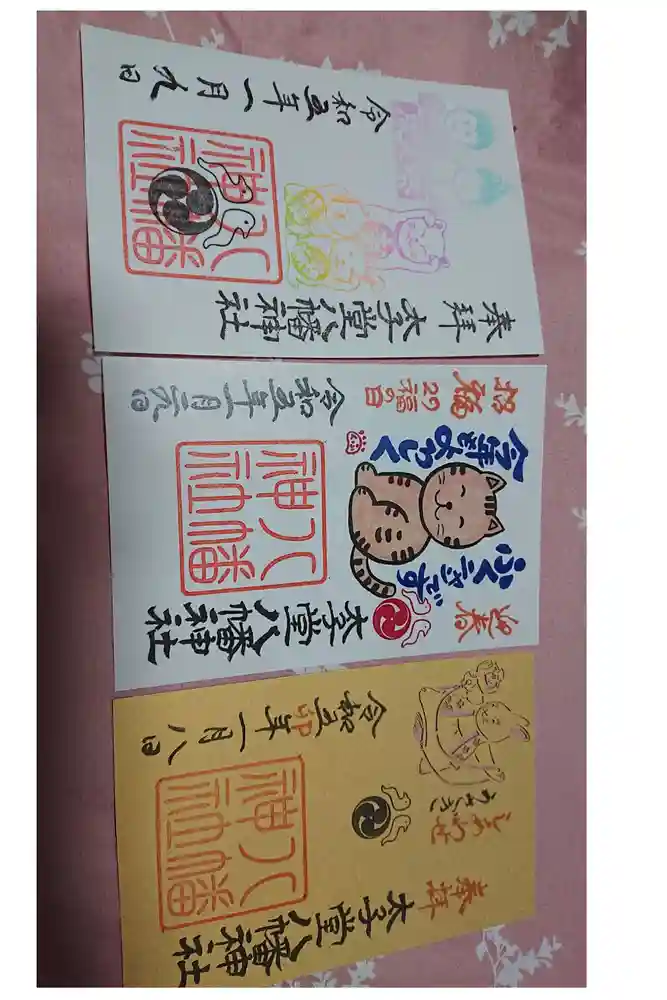 奉拝
太子堂八幡神社
八幡
神社
しあわせ
うさぎ
令和五卯年一月八日
迎春
太子堂八幡神社
八幡
神社
今年もよろしく
招福
29福の日
令和五年一月二九日
奉拝
太子堂八幡神社
八幡
神社
令和五年一月九日